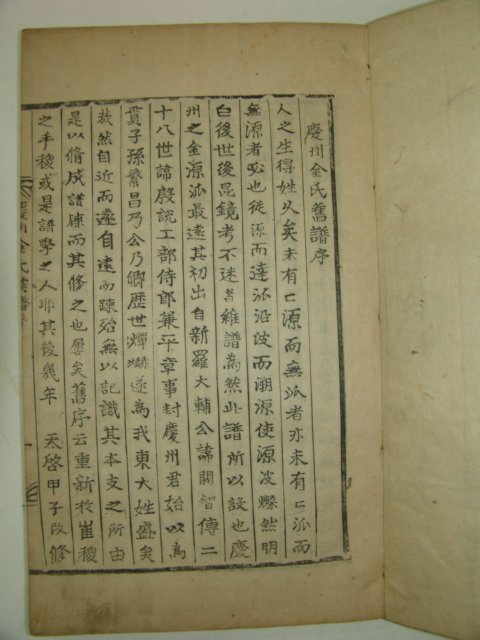 慶州金氏舊譜序
人之生得姓久矣未有亡源而無派者亦未有亡派而
無源者必也從源而達派沿波而溯源使源波燦然明
白後世後昆鏡考不迷者維譜為然此譜所以設也慶
州之金源派最遠其初出自新羅大輔公諱閼智傳二
十八世諱殷說工部侍郎兼平章事封慶州君始以為
貫子孫繁昌乃公乃卿歷世燀爀遂為我東大姓盛矣
哉然自近而遠自遠而踈殆無以記識其本支之所由
是以脩成譜牒而其修之也屢矣舊序云重新於崔稷
之手稷或是譜學之人耶其後幾年 天啓甲子改修
慶州金氏族譜